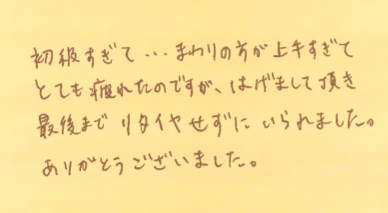 初級すぎて…まわりの方が上手すぎて
とても疲れたのですが、はげまして頂き
最後までリタイヤせずにいられました。
ありがとうございました。